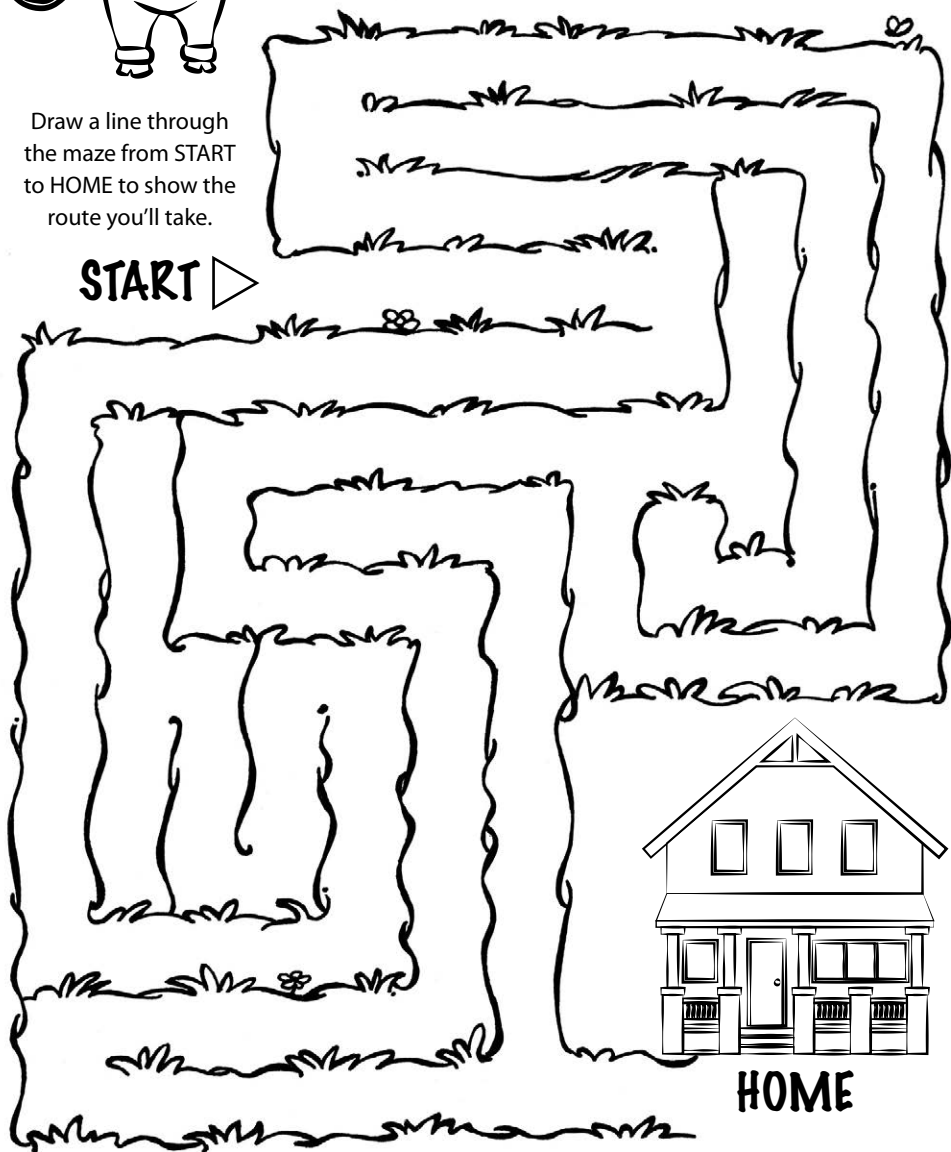 Draw a line through
the maze from START
to HOME to show the
route you’ll take.
START
HOME